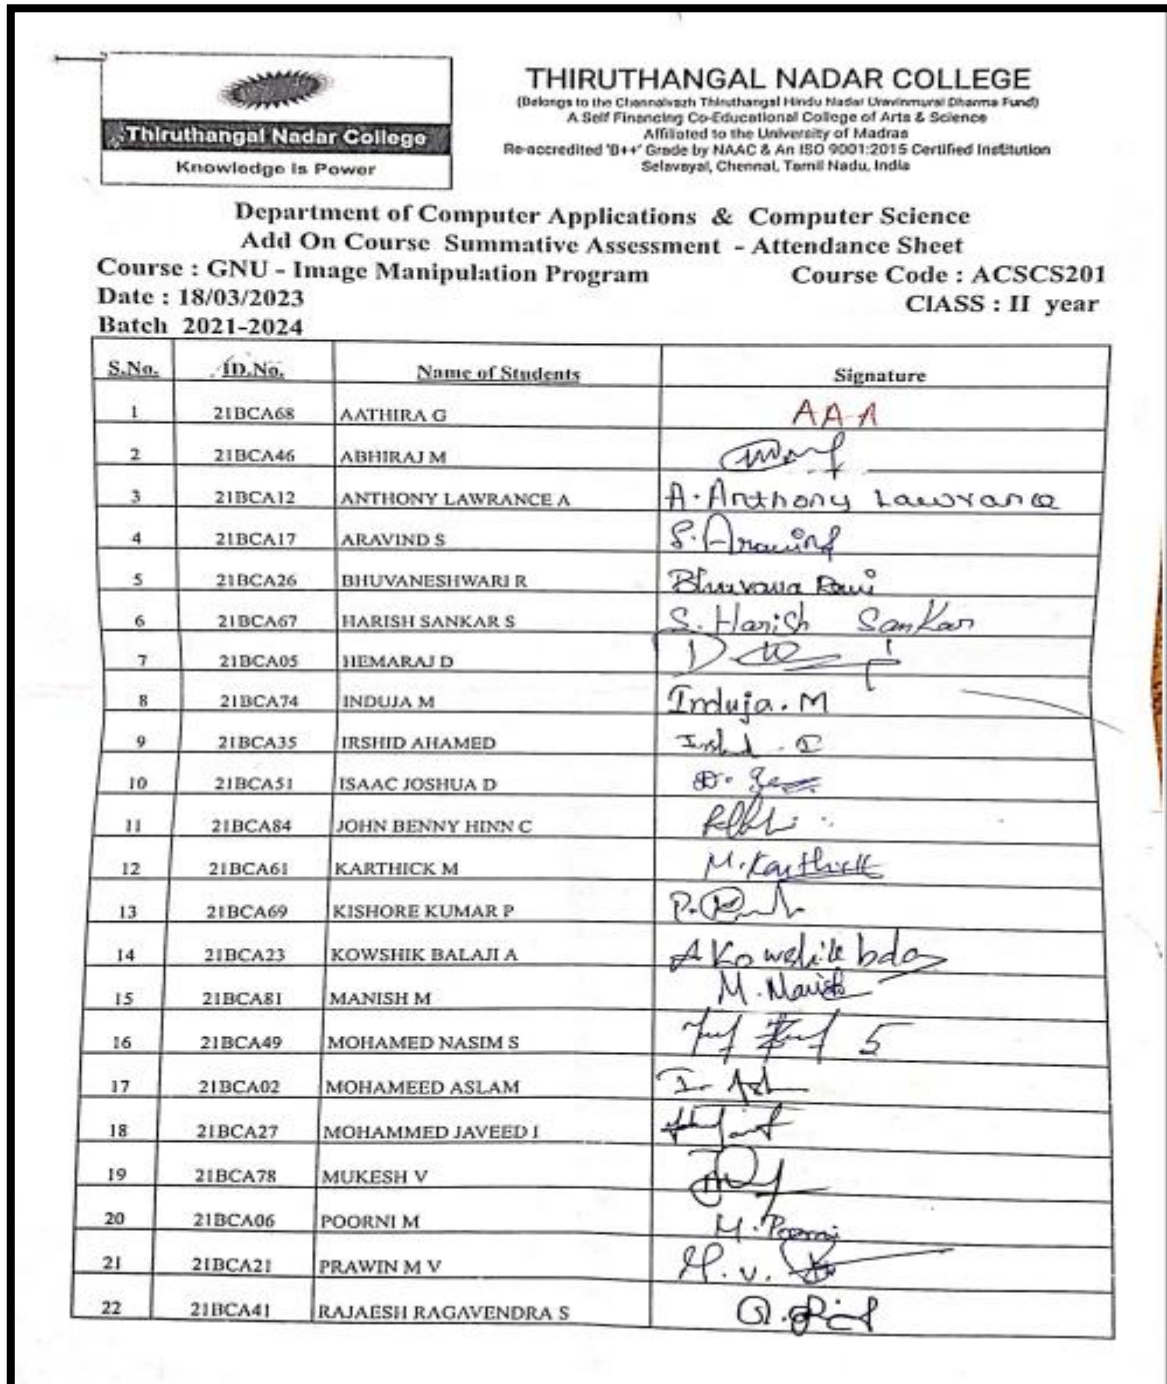 Thiruthangal Nadar College
Knowledge is Power
THIRUTHANGAL NADAR COLLEGE
(Belongs to the Chennaivazh Thiruthangal Hindu Nadar Uravinmurai Dharma Fund)
A Self Financing Co-Educational College of Arts & Science
Affiliated to the University of Madras
Re-accredited 'B++' Grade by NAAC & An ISO 9001:2015 Certified Institution
Selavayal, Chennai, Tamil Nadu, India
Department of Computer Applications & Computer Science
Add On Course Summative Assessment - Attendance Sheet
Course : GNU - Image Manipulation Program Course Code : ACSCS201
Date : 18/03/2023 ClASS : II year
Batch 2021-2024
S.No. ID.No. Name of Students Signature
1 21BCA68 AATHIRA G AA-A
2 21BCA46 ABHIRAJ M
3 21BCA12 ANTHONY LAWRANCE A A. Anthony Lawrance
4 21BCA17 ARAVIND S S. Aravind
5 21BCA26 BHUVANESHWARI R Bhuvana
6 21BCA67 HARISH SANKAR S S. Harish Sankar
7 21BCA05 HEMARAJ D
8 21BCA74 INDUJA M Induja. M
9 21BCA35 IRSHID AHAMED
10 21BCA51 ISAAC JOSHUA D
11 21BCA84 JOHN BENNY HINN C
12 21BCA61 KARTHICK M M. Karthick
13 21BCA69 KISHORE KUMAR P
14 21BCA23 KOWSHIK BALAJI A
15 21BCA81 MANISH M M. Manish
16 21BCA49 MOHAMED NASIM S
17 21BCA02 MOHAMEED ASLAM
18 21BCA27 MOHAMMED JAVEED I
19 21BCA78 MUKESH V
20 21BCA06 POORNI M M. Poorni
21 21BCA21 PRAWIN M V M. V.
22 21BCA41 RAJAESH RAGAVENDRA S